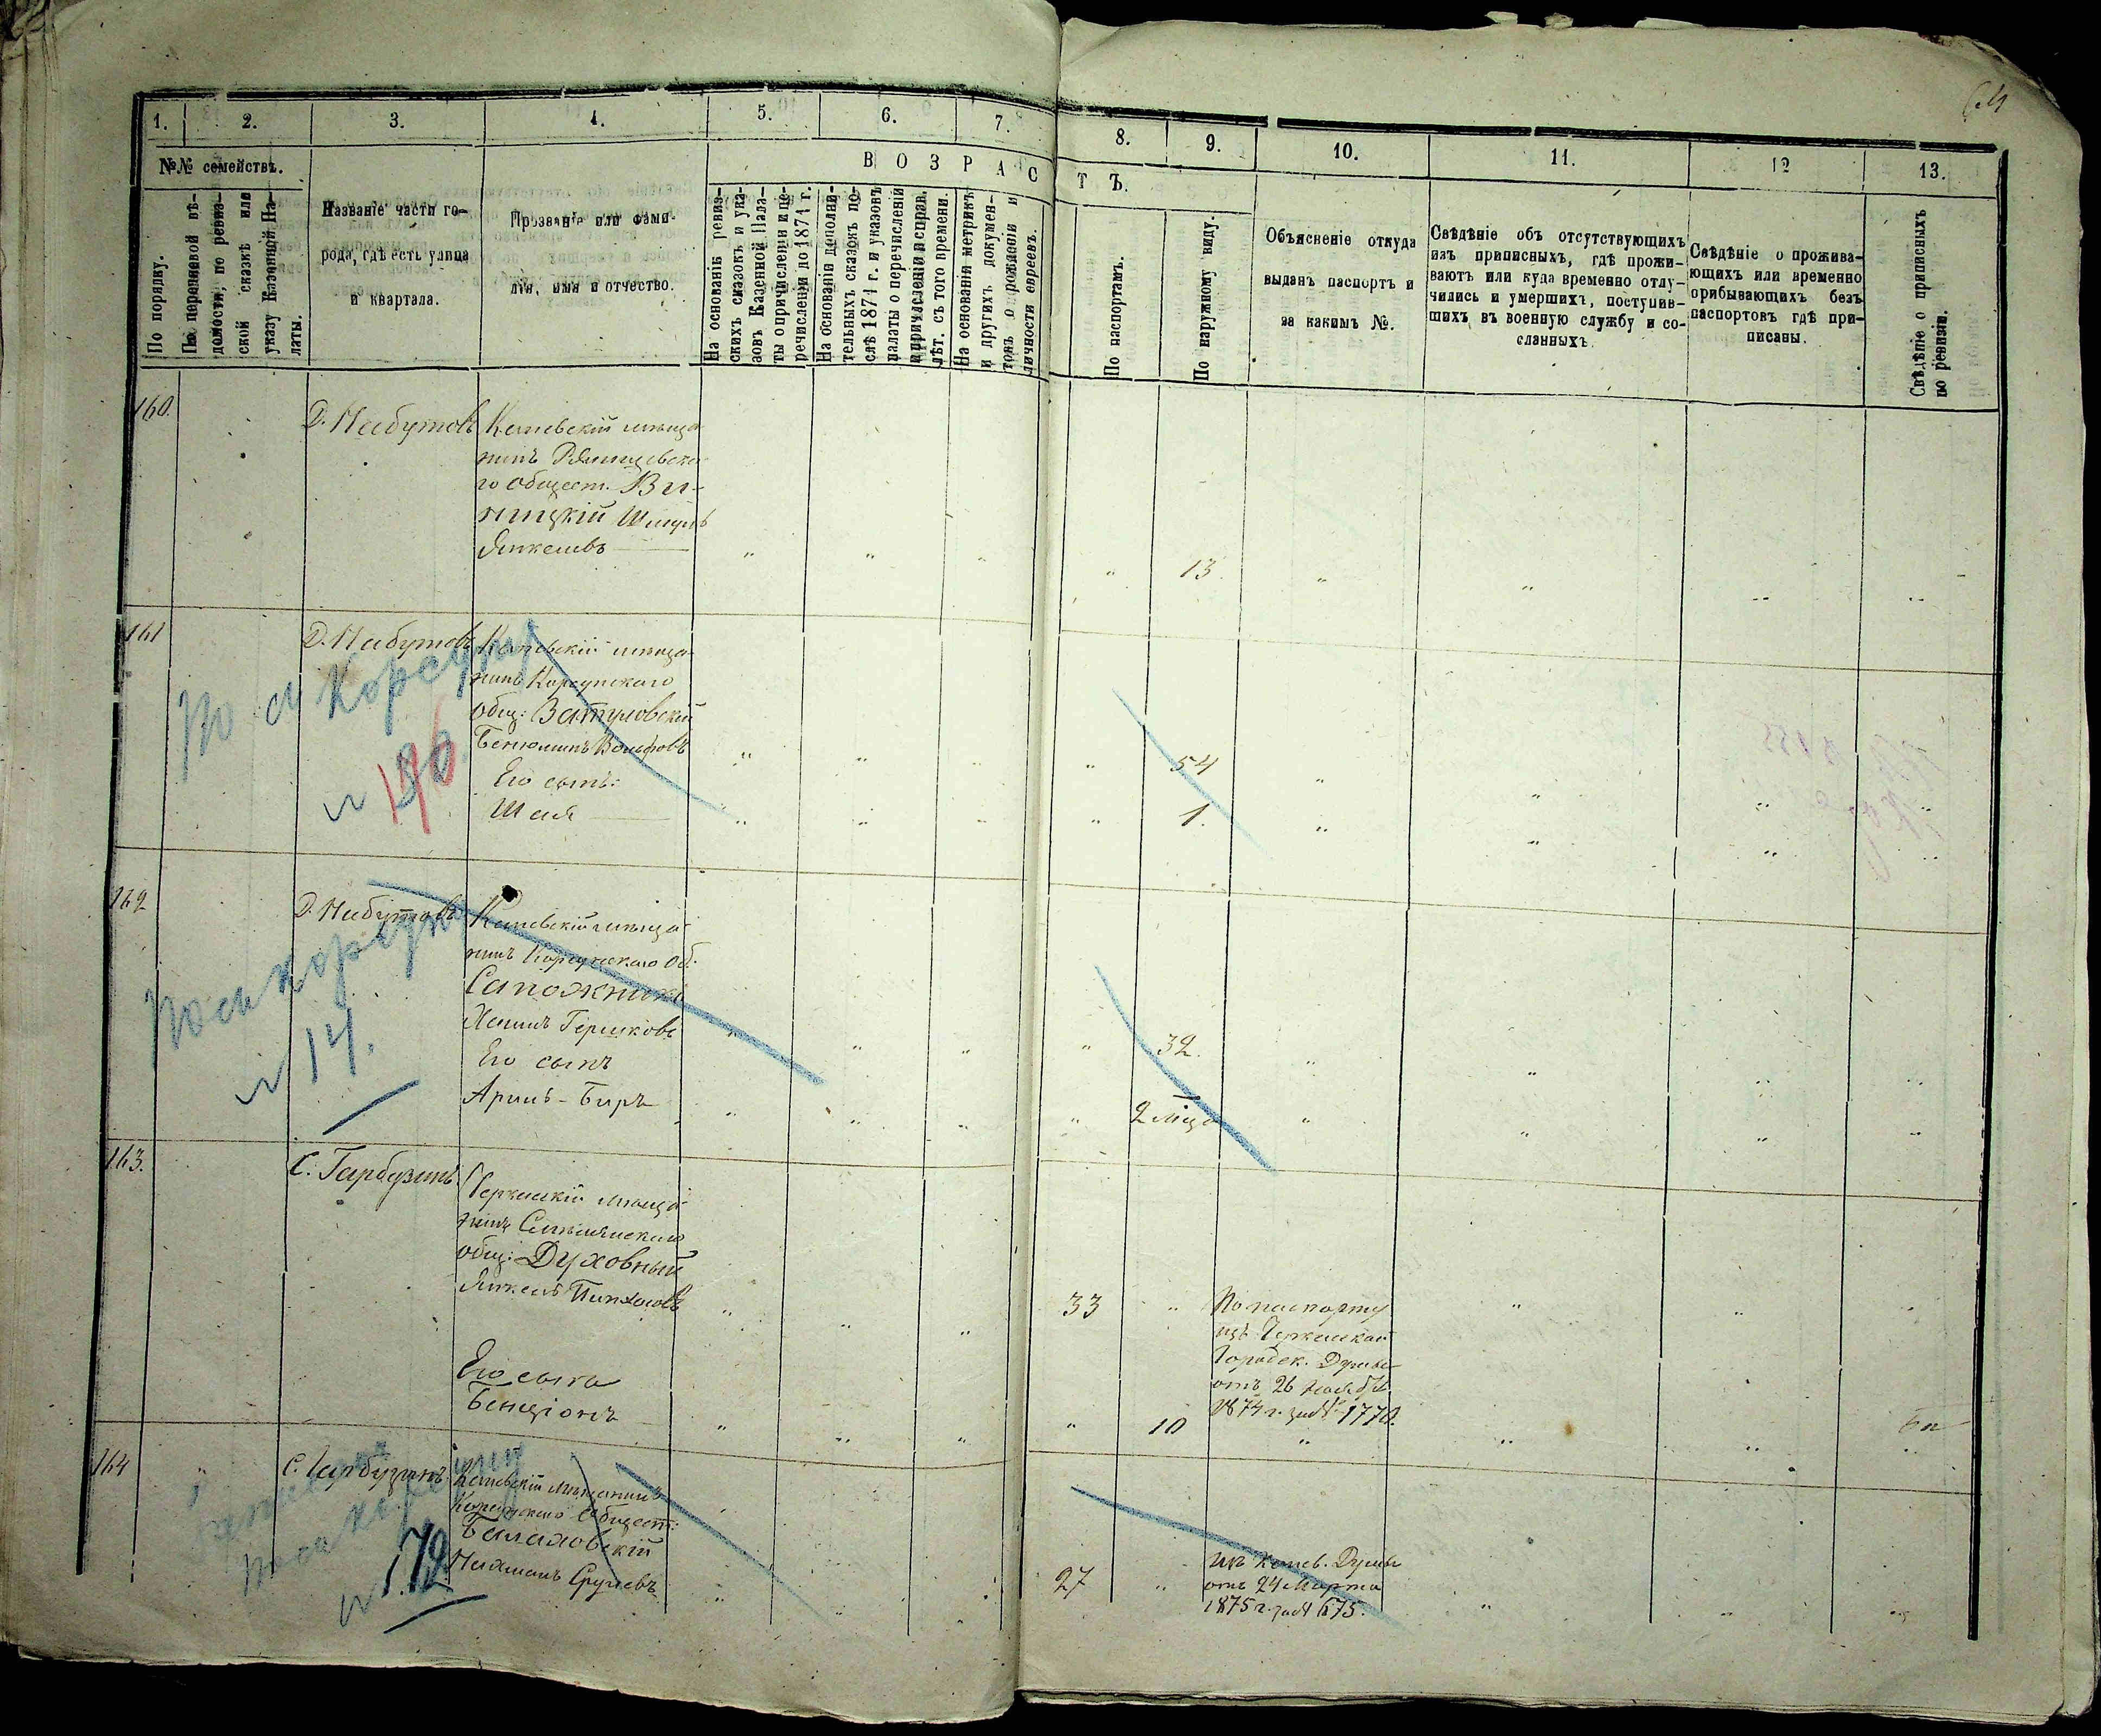 64
1. 2. 3. 4. 5. 6. 7. 8. 9. 10. 11. 12 13.
№№ семействъ.
В О З Р А С Т Ъ.
По порядку.
По перечневой вѣ-
домости, по ревиз-
ской сказкѣ или
указу Казенной Па-
латы.
Названіе части го-
рода, гдѣ есть улица
и квартала.
Прозваніе или фами-
лія, имя и отчество.
На основаніи ревиз-
скихъ сказокъ и ука-
зовъ Казенной Пала-
ты о причисленіи и пе-
речисленіи до 1871 г.
На основаніи дополни-
тельныхъ сказокъ по-
слѣ 1871 г. и указовъ
палаты о перечисленіи
и причисленіи и справ.
лѣт. съ того времени.
На основаніи метрикъ
и другихъ докумен-
товъ о рожденіи и
личности евреевъ.
По паспортамъ.
По наружному виду.
Объясненіе откуда
выданъ паспортъ и
за какимъ №.
Свѣдѣніе объ отсутствующихъ
изъ приписныхъ, гдѣ прожи-
ваютъ или куда временно отлу-
чились и умершихъ, поступив-
шихъ въ военную службу и со-
сланныхъ.
Свѣдѣніе о прожива-
ющихъ или временно
прибывающихъ безъ
паспортовъ гдѣ при-
писаны.
Свѣдѣніе о приписныхъ
по ревизіи.
160.
Д. Набутовъ
Каневскій мѣща
нинъ
го общест. Ви-
ницкій Шмулъ
Янкелевъ
13.
161
Д. Набутовъ
Каневскій мѣща
нинъ Корсунскаго
общ: Ватуловскій
Беньюминъ Вольфовъ
54
Его сынъ:
Шая
1.
По см Корсуну
№ 196
162
Д. Набутовъ
Каневскій мѣща
нинъ Корсунскаго об.
Сапожникъ
Хаимъ Гершковъ
32.
Его сынъ
Аронъ-Беръ
2 мѣца
По см Корсуну
№ 14.
163.
С. Гарбузинъ
Черкаскій мѣща
нинъ Смѣлянскаго
общ: Духовный
Янкель Пинхасовъ
33
По паспорту
изъ Черкаской
Городск. Думы
отъ 26 Ноября
1874 г. за № 1770.
Его сынъ
Бенціонъ
10
164
С. Гарбузинъ
Каневскій мѣщанинъ
Корсунскаго общест:
Балаховскій
Нахманъ Срулевъ
27
изъ Канев. Думы
отъ 24 Марта
1875 г. за № 675.
По см Корсуну
№ 172